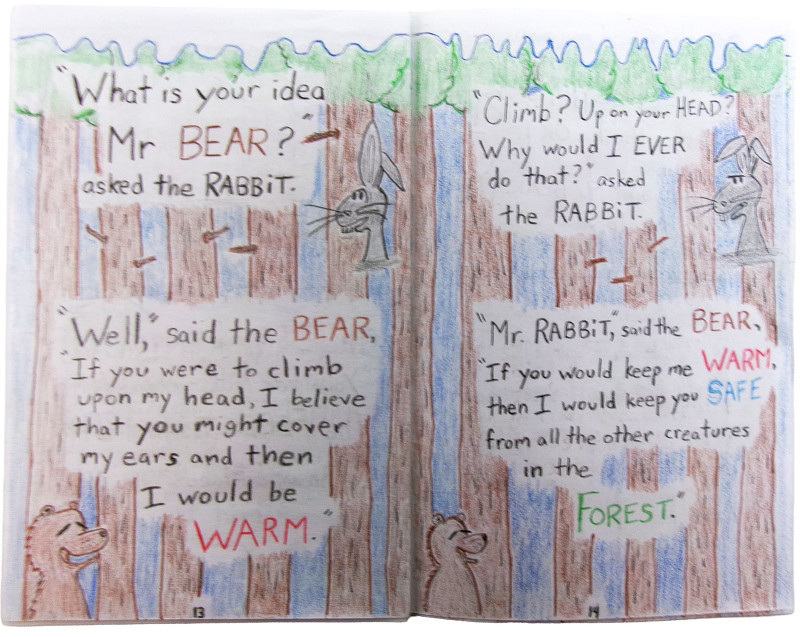 "What is your idea
Mr BEAR?"
asked the RABBiT.
"Well," said the BEAR,
"If you were to climb
upon my head, I believe
that you might cover
my ears and then
I would be
WARM."
13
"Climb? Up on your HEAD?
Why would I EVER
do that?" asked
the RABBiT.
"Mr. RABBiT," said the BEAR,
"If you would keep me WARM,
then I would keep you SAFE
from all the other creatures
in the
FOREST."
14